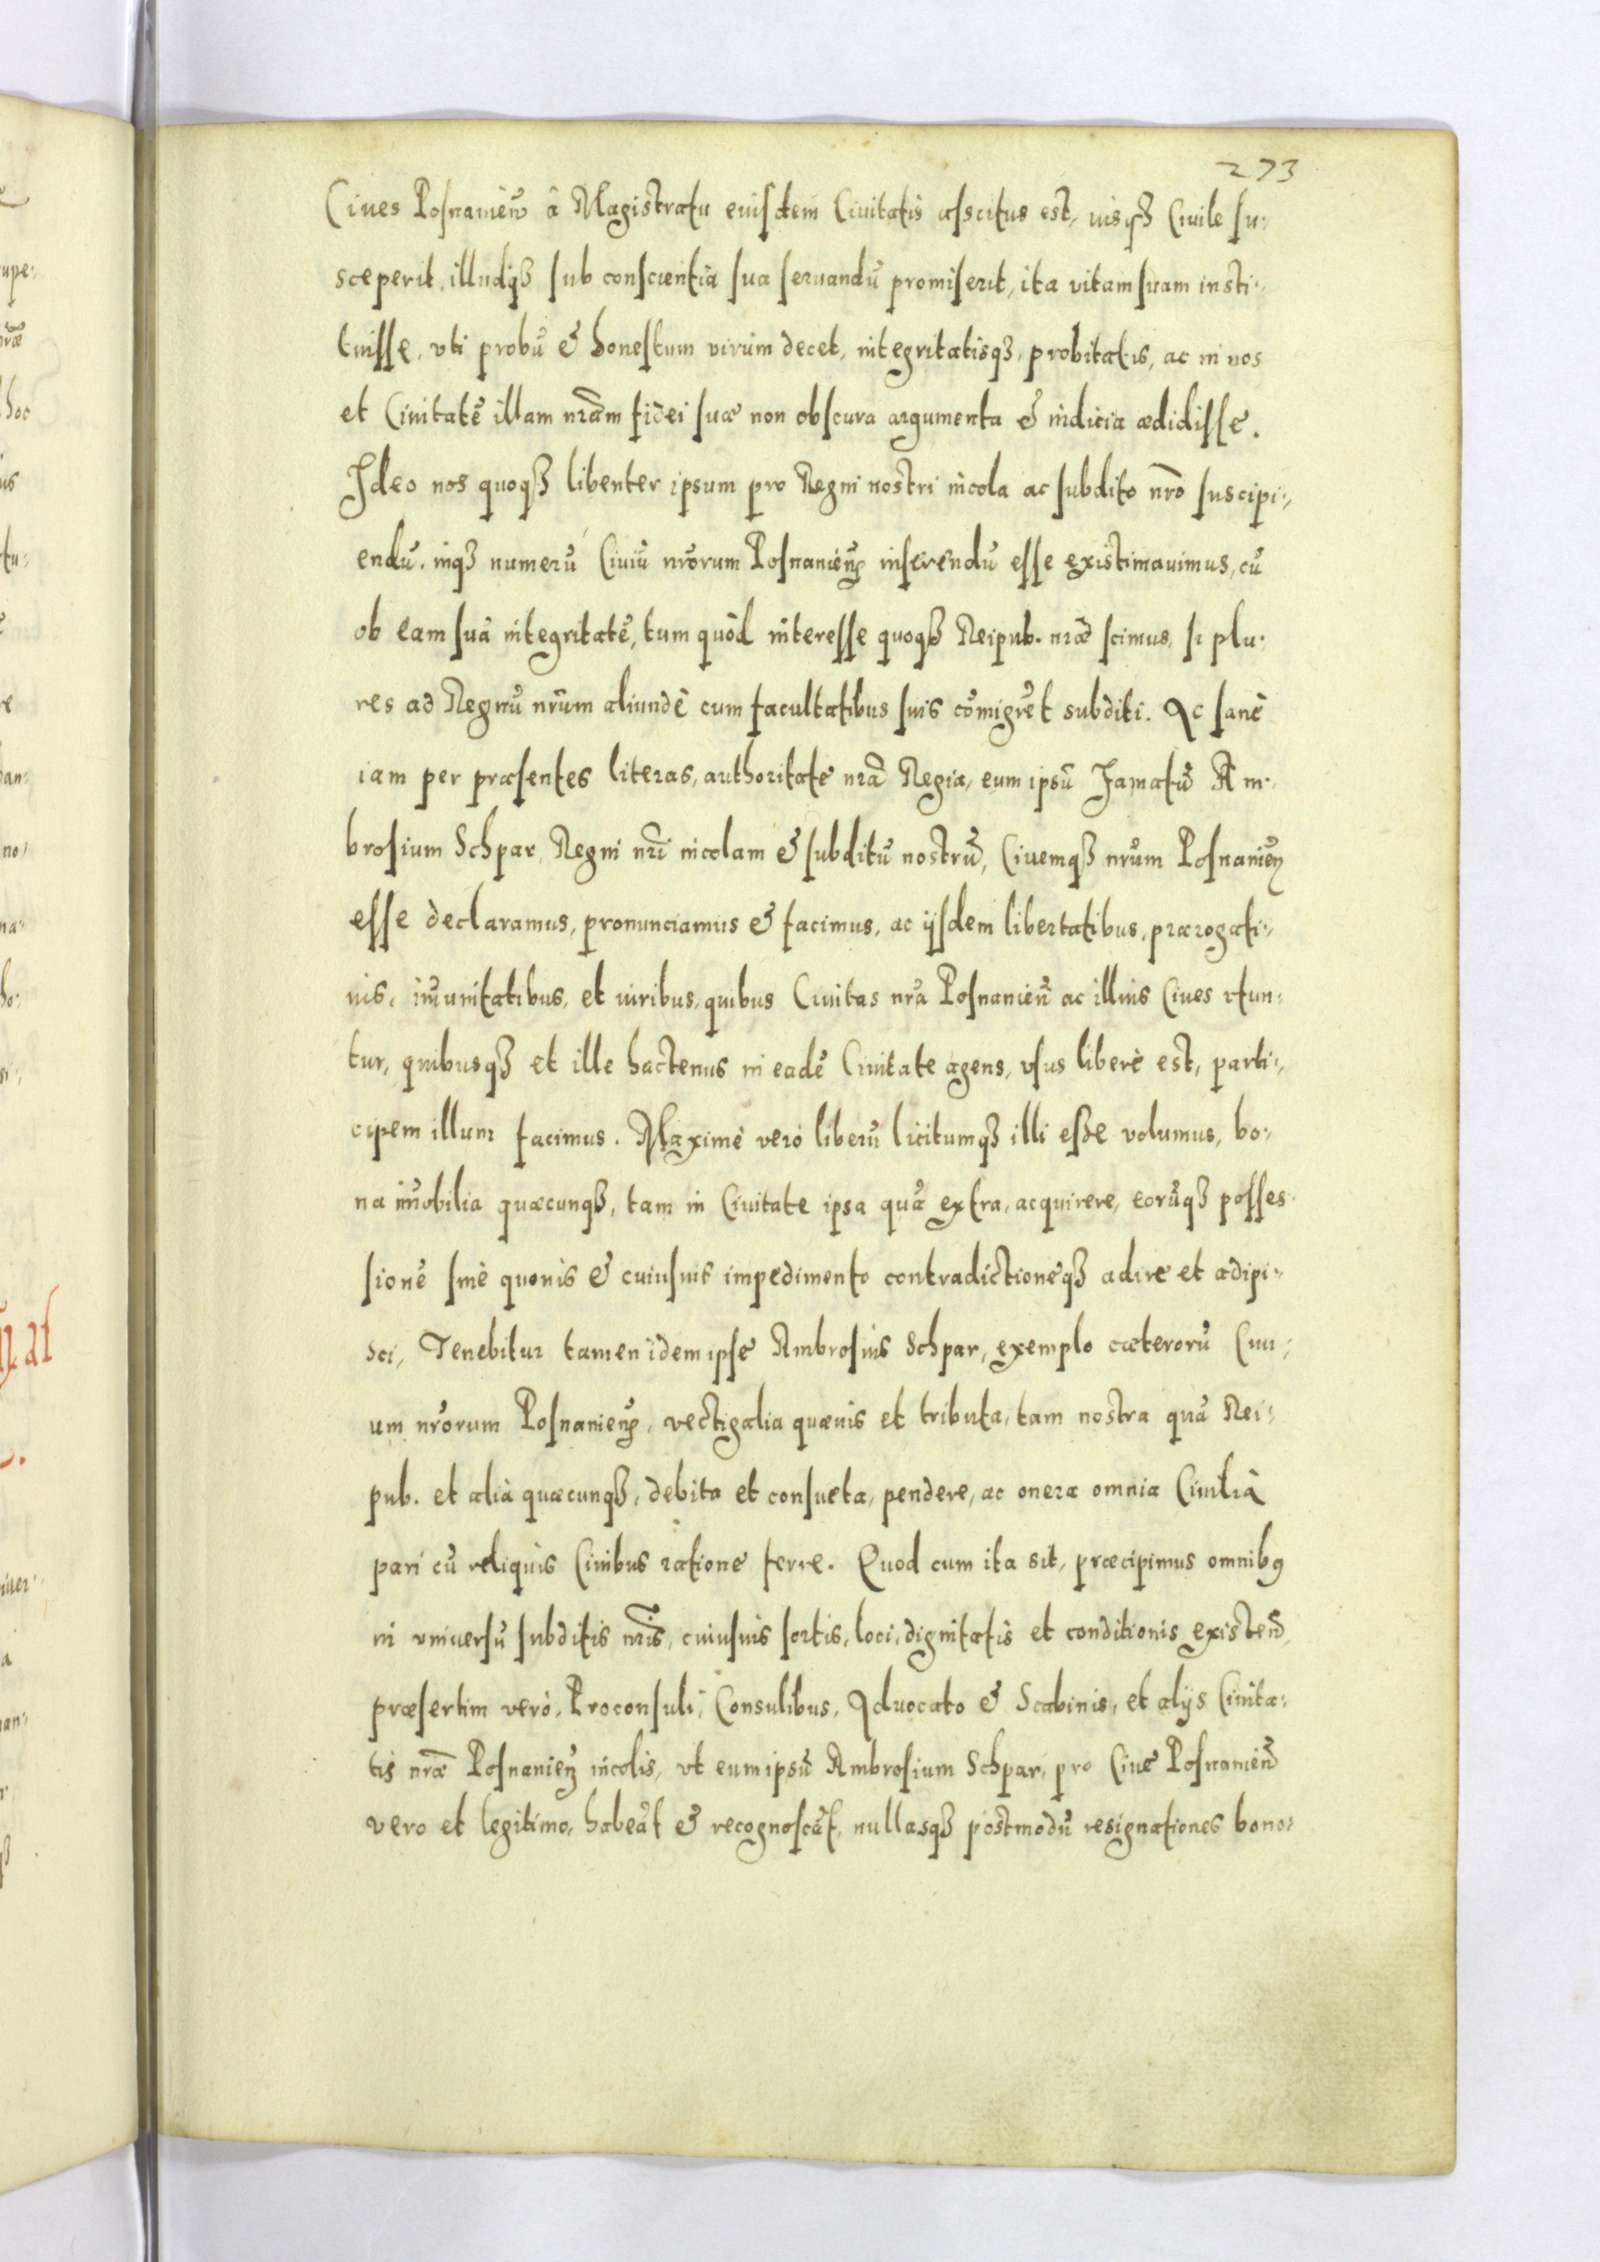 273
Ciues Posnanien̄ à Magistratu eiusdem Ciuitatis ascitus est, iusqȝ Ciuile su-
sceperit, illudqȝ sub conscientia sua seruandū promiserit, ita vitam suam insti-
tuisse, vti probū & honestum virum decet, integritatisqȝ, probitatis, ac in nos
et Ciuitatē illam nrām fidei suæ non obscura argumenta & indicia ædidisse.
Ideo nos quoqȝ libenter ipsum pro Regni nostri incola ac subdito nrō suscipi-
endū, inqȝ numerū Ciuiū nrōrum Posnanien̄ inserendū esse existimauimus, cū
ob eam suā integritatē, tum quòd interesse quoqȝ Reipub. nrǣ scimus, si plu-
res ad Regnū nrūm aliundè cum facultatibus suis cōmigrēt subditi. Ac sanè
iam per præsentes literas, authoritate nrā Regia, eum ipsū Famatū Am-
brosium Schpar, Regni nrī incolam & subditū nostrū, Ciuemqȝ nrūm Posnanien̄
esse declaramus, pronunciamus & facimus, ac ijsdem libertatibus, prærogati-
uis, im̄unitatibus, et iuribus, quibus Ciuitas nrā Posnanien̄ ac illius Ciues vtun-
tur, quibusqȝ et ille hactenus in eadē Ciuitate agens, vsus liberè est, parti-
cipem illum facimus. Maximè verò liberū licitumqȝ illi esse volumus, bo-
na im̄obilia quæcunqȝ, tam in Ciuitate ipsa quā extra, acquirere, eorūqȝ posses-
sionē sinè quouis & cuiusuis impedimento contradictionéqȝ adire et adipi-
sci, Tenebitur tamen idem ipse Ambrosius Schpar, exemplo cæterorū Ciui-
um nrōrum Posnanien̄, vectigalia quæuis et tributa, tam nostra quā Rei-
pub. et alia quæcunqȝ, debita et consueta, pendere, ac onera omnia Ciuilia
pari cū reliquis Ciuibus ratione ferre. Quod cum ita sit, præcipimus omnibꝰ
in vniuersū subditis nrīs, cuiusuis sortis, loci, dignitatis et conditionis existen̄,
præsertim verò, Proconsuli, Consulibus, Aduocato & Scabinis, et alijs Ciuita-
tis nrǣ Posnanien̄ incolis, vt eum ipsū Ambrosium Schpar, pro Ciue Posnanien̄
vero et legitimo, habeāt & recognoscāt, nullasqȝ postmodū resignationes bono-